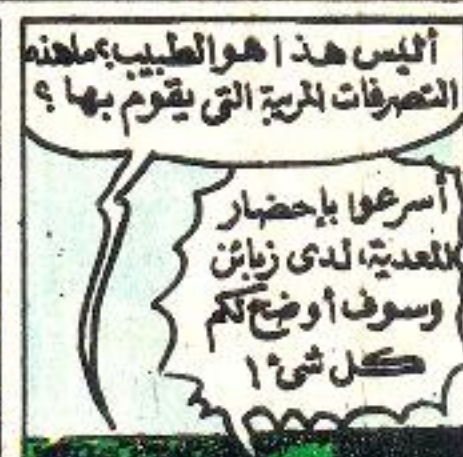 أليس هذا هو الطبيب؟ ما هذه
التصرفات المريبة التي يقوم بها ؟
أسرعوا بإحضار
المعدية، لدى زبائن
وسوف أوضح لكم
كل شئ !